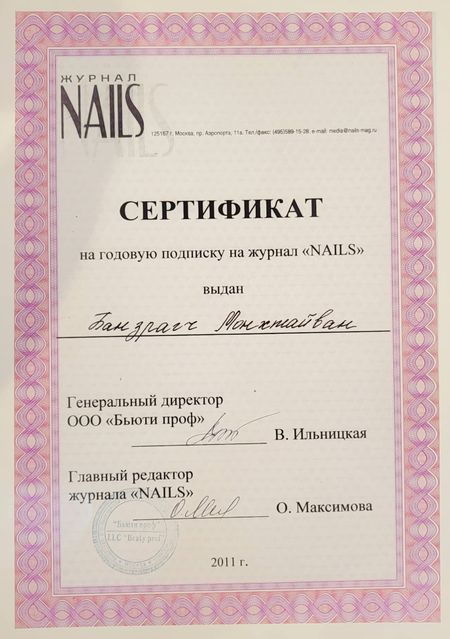 ЖУРНАЛ
NAILS
125167 г. Москва, пр. Аэропорта, 11а. Тел./факс: (495)589-15-28, e-mail: media@nails-mag.ru
СЕРТИФИКАТ
на годовую подписку на журнал «NAILS»
выдан
Банзрагч Монхтайван
Генеральный директор
ООО «Бьюти проф»
В. Ильницкая
Главный редактор
журнала «NAILS»
О. Максимова
"Бьюти проф"
LLC "Beaty prof"
2011 г.